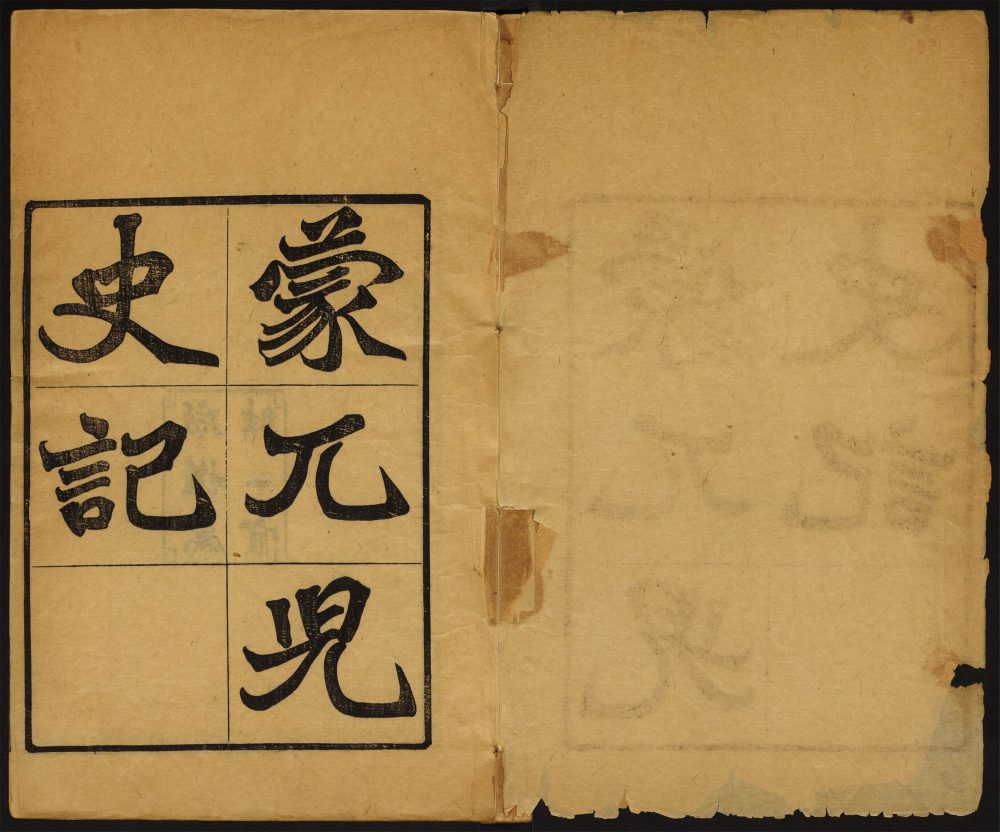 蒙兀兒
史記